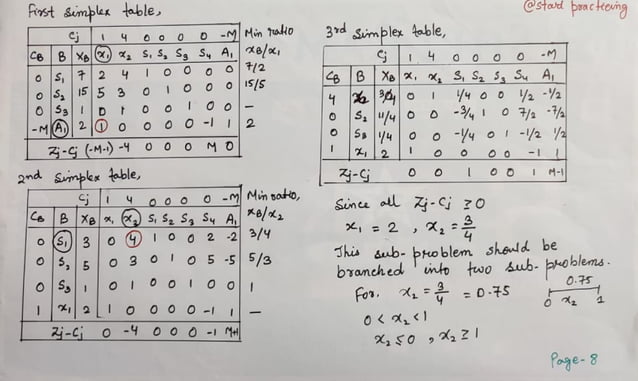 First Simplex table,
Cj 1 4 0 0 0 0 -M Min ratio
CB B XB x₁ x₂ S₁ S₂ S₃ S₄ A₁ XB/x₁
0 S₁ 7 2 4 1 0 0 0 0 7/2
0 S₂ 15 5 3 0 1 0 0 0 15/5
0 S₃ 1 0 1 0 0 1 0 0 —
-M A₁ 2 1 0 0 0 0 -1 1 2
Zj-Cj (-M-1) -4 0 0 0 M 0
2nd Simplex table,
Cj 1 4 0 0 0 0 -M Min ratio,
CB B XB x₁ x₂ S₁ S₂ S₃ S₄ A₁ XB/x₂
0 S₁ 3 0 4 1 0 0 2 -2 3/4
0 S₂ 5 0 3 0 1 0 5 -5 5/3
0 S₃ 1 0 1 0 0 1 0 0 1
1 x₁ 2 1 0 0 0 0 -1 1 —
Zj-Cj 0 -4 0 0 0 -1 M+1
@start practicing
3rd Simplex table,
Cj 1 4 0 0 0 0 -M
CB B XB x₁ x₂ S₁ S₂ S₃ S₄ A₁
4 x₂ 3/4 0 1 1/4 0 0 1/2 -1/2
0 S₂ 11/4 0 0 -3/4 1 0 7/2 -7/2
0 S₃ 1/4 0 0 -1/4 0 1 -1/2 1/2
1 x₁ 2 1 0 0 0 0 -1 1
Zj-Cj 0 0 1 0 0 1 M-1
Since all Zj-Cj ≥ 0
x₁ = 2 , x₂ = 3/4
This sub-problem should be
branched into two sub-problems.
For, x₂ = 3/4 = 0.75
0.75
0 x₂ 1
0 < x₂ < 1
x₂ ≤ 0 , x₂ ≥ 1
Page- 8